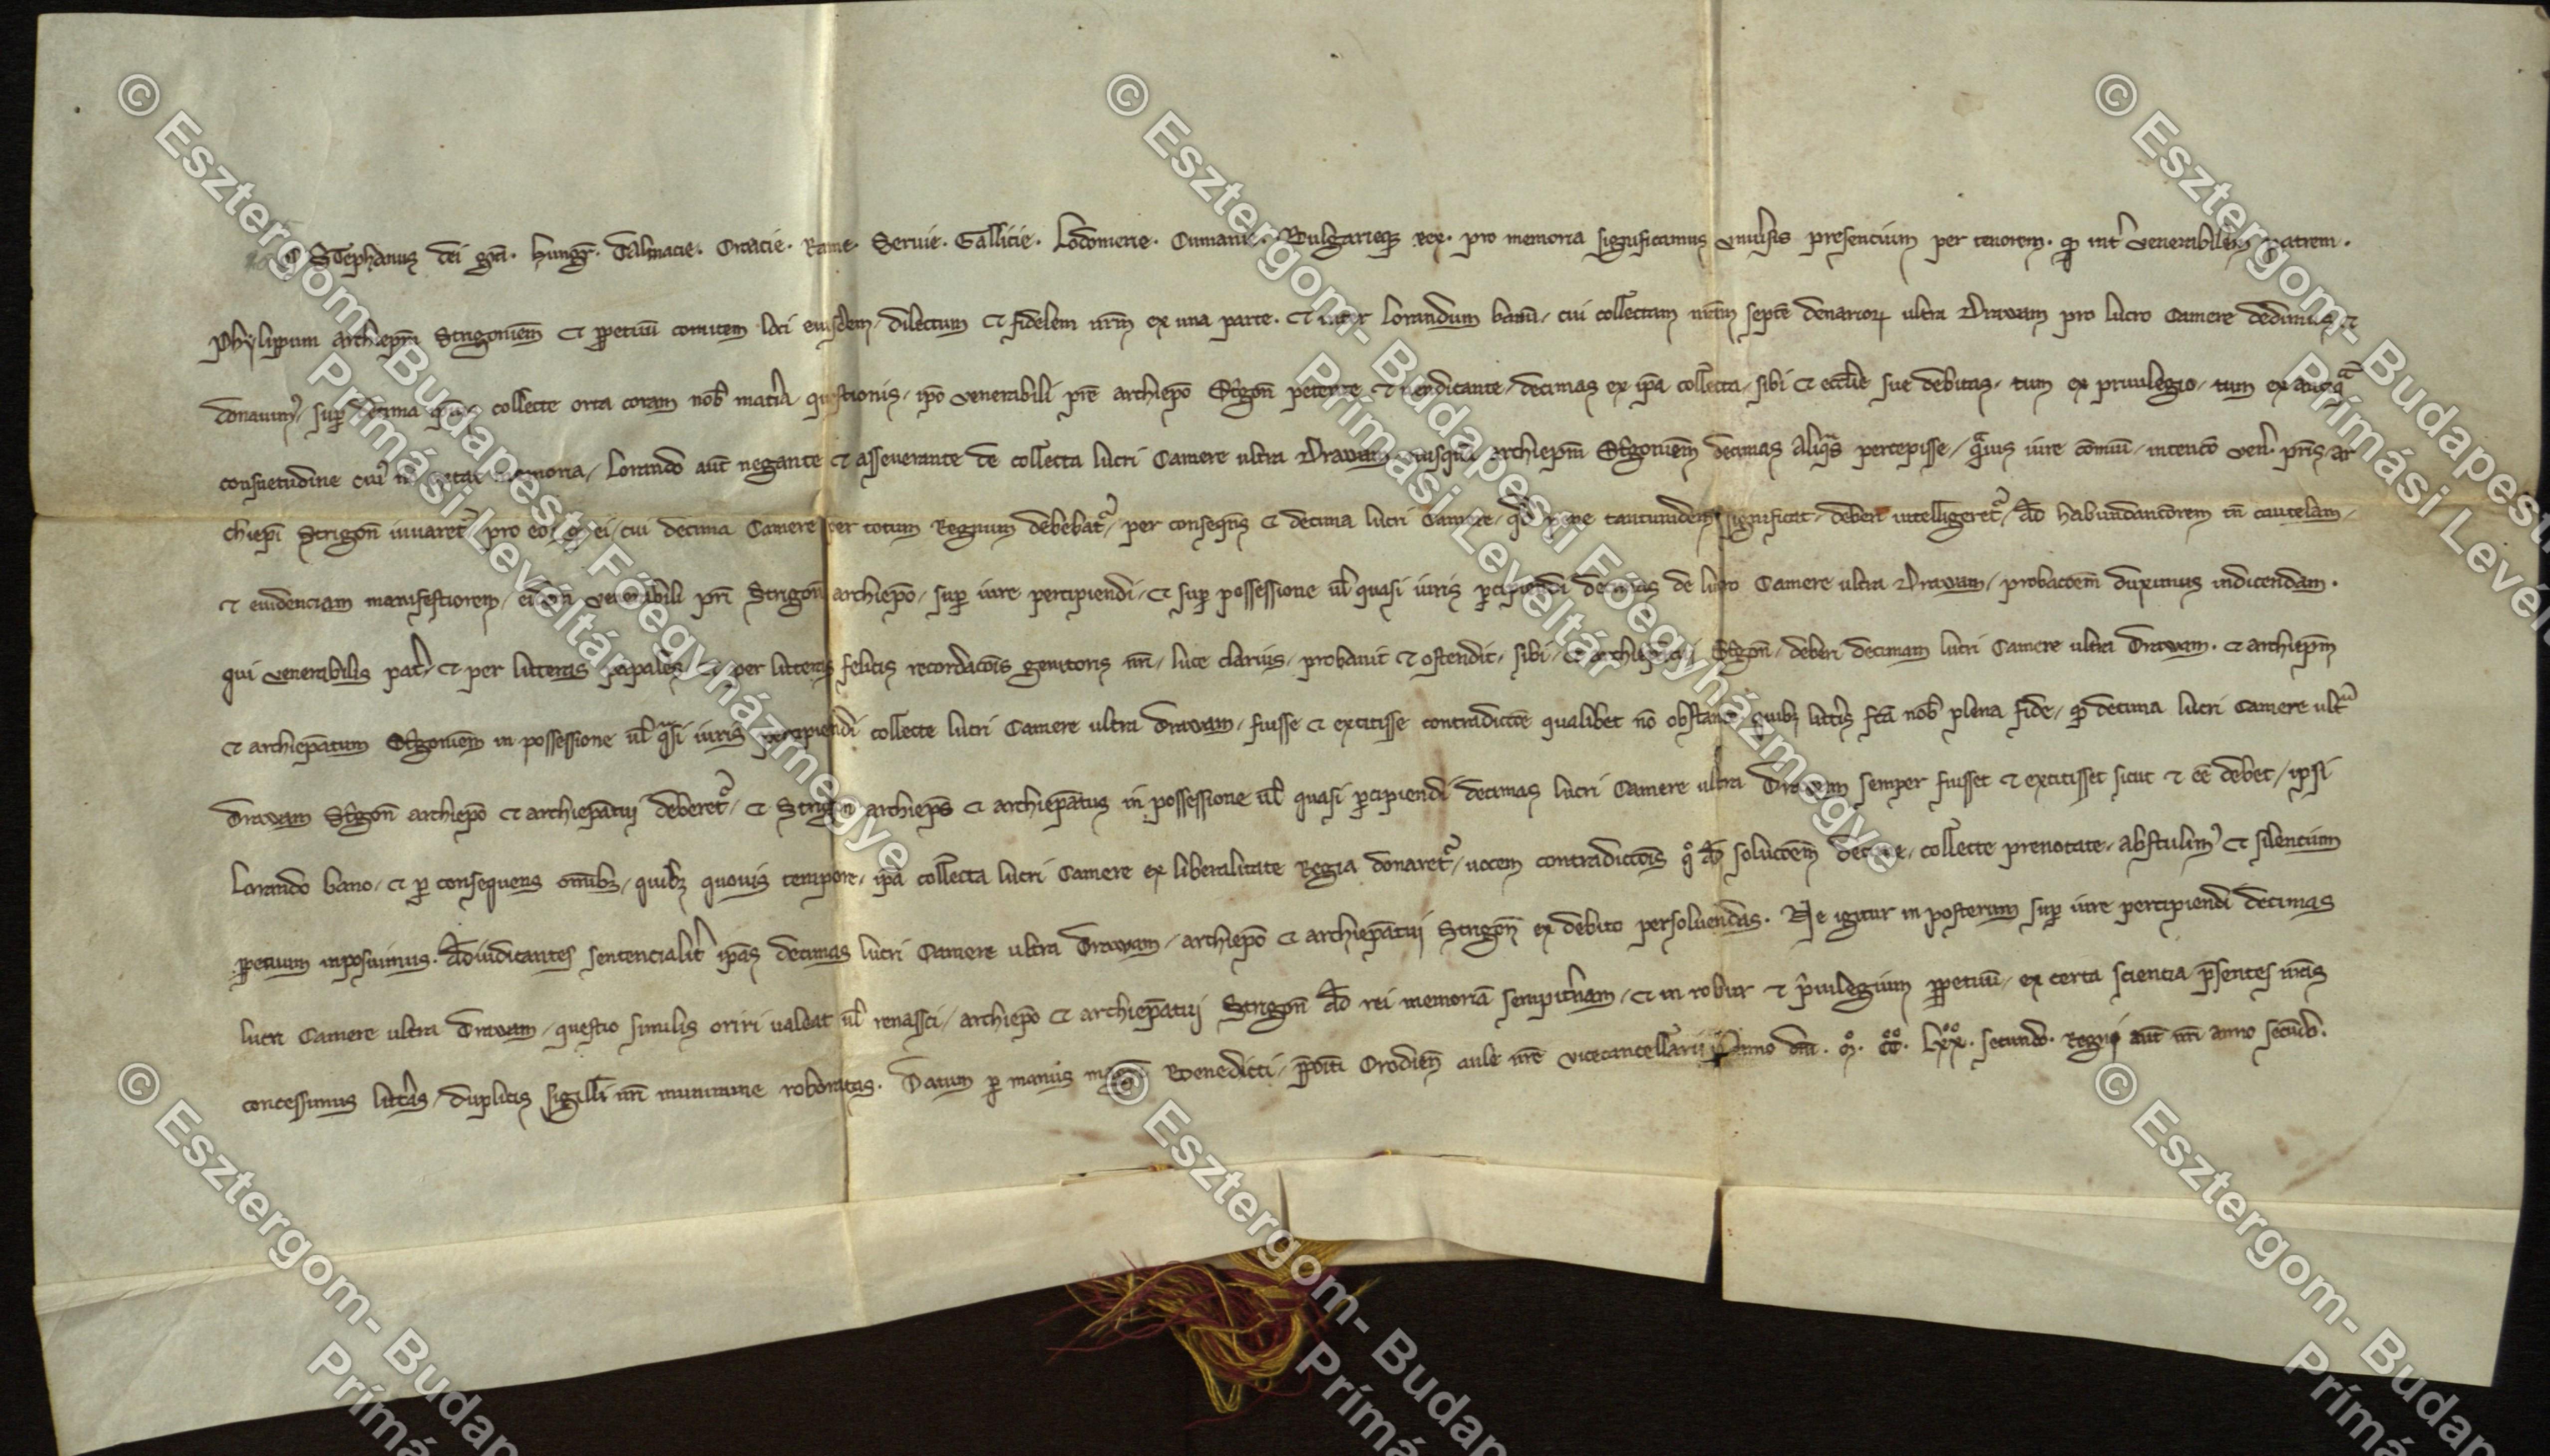 Stephanus dei gra. Hungr. Dalmacie. Croacie. Rame. Seruie. Gallicie. Lodomerie. Cumanie. Bulgarieq; rex. pro memoria significamus vniuersis presencium per tenorem. qd int' venerabilem patrem.
Phylippum archiepm Strigoniem et ppetuu comitem loci eiusdem, dilectum et fidelem nrm ex una parte. et inter Lorandum banu, cui collectam nram septe denarior ultra Drawam pro lucro Camere dedimus et
donauim', sup decima ipius collecte orta coram nob materia questionis, ipo venerabili pre archiepo Strigon petente et uendicante, decimas ex ipa collecta, sibi et ecclie sue debitas, tum ex priuilegio, tum ex antiqua
consuetudine cui' memoria, Lorando aut negante et asseuerante de collecta lucri Camere ultra Drawam archiepm Strigoniem decimas aliqas percepisse, quis iure comuni, intencio ven pris ar
chiepi Strigon iuuaret', pro eo q ei, cui decima Camere per totum Regnum debebat', per consequens et decima lucri Camere, qd pene tantundem significat, deberi intelligeret', ad habundanciorem tn cautelam,
et euidenciam manifestiorem, eidem venerabili pri Strigon archiepo, sup iure percipiendi, et sup possessione ul quasi iuris pcipiendi decimas de lucro Camere ultra Drawam, probacoem duximus indicendam.
qui venerabilis pat' et per litteras papales et per litteras felicis recordacois genitoris nri, luce clarius, probauit et ostendit, sibi, et archiepatui Strigon, deberi decimam lucri Camere ultra Drawam. et archiepm
et archiepatum Strigoniem in possessione ul qasi iuris percipiendi collecte lucri Camere ultra Drawam, fuisse et extitisse contradiccoe qualibet no obstante, quib; litteris fca nob plena fide, qd decima lucri Camere ult
Drawam Strigon archiepo et archiepatui deberet', et Strigon archieps et archiepatus in possessione ul quasi pcipiendi decimas lucri Camere ultra Drawam semper fuisset et extitisset sicut et ee debet, ipsi
Lorando bano, et p consequens omib;, quib; quouis tempore, ipa collecta lucri Camere ex liberalitate Regia donaret', uocem contradiccois qo ad solucoem decime, collecte prenotate, abstulim' et silencium
ppetuum inposuimus. Adiudicantes sentencialit' ipas decimas lucri Camere ultra Drawam, archiepo et archiepatui Strigon ex debito persoluendas. Ne igitur in posterum sup iure percipiendi decimas
lucri Camere ultra Drawam, questio similis oriri ualeat ul renasci, archiepo et archiepatui Strigon ad rei memoria sempiternam, et in robur et priuilegium ppetuu, ex certa sciencia psentes nras
concessimus litteras, duplicis sigilli nri munimine roboratas. Datum p manus magri Benedicti, ppoiti Orodien aule nre vicecancellarii Anno dni. m. cc. lxx. secundo. Regni aut nri anno secundo.
© Esztergom-Budapesti Főegyházmegye
Prímási Levéltár
© Esztergom-Budapesti Főegyházmegye
Prímási Levéltár
© Esztergom-Budapesti
Prímási Levél
© Esztergom-Budap
Prímá
© Esztergom-Budap
Prímá
© Esztergom-Budap
Prímá